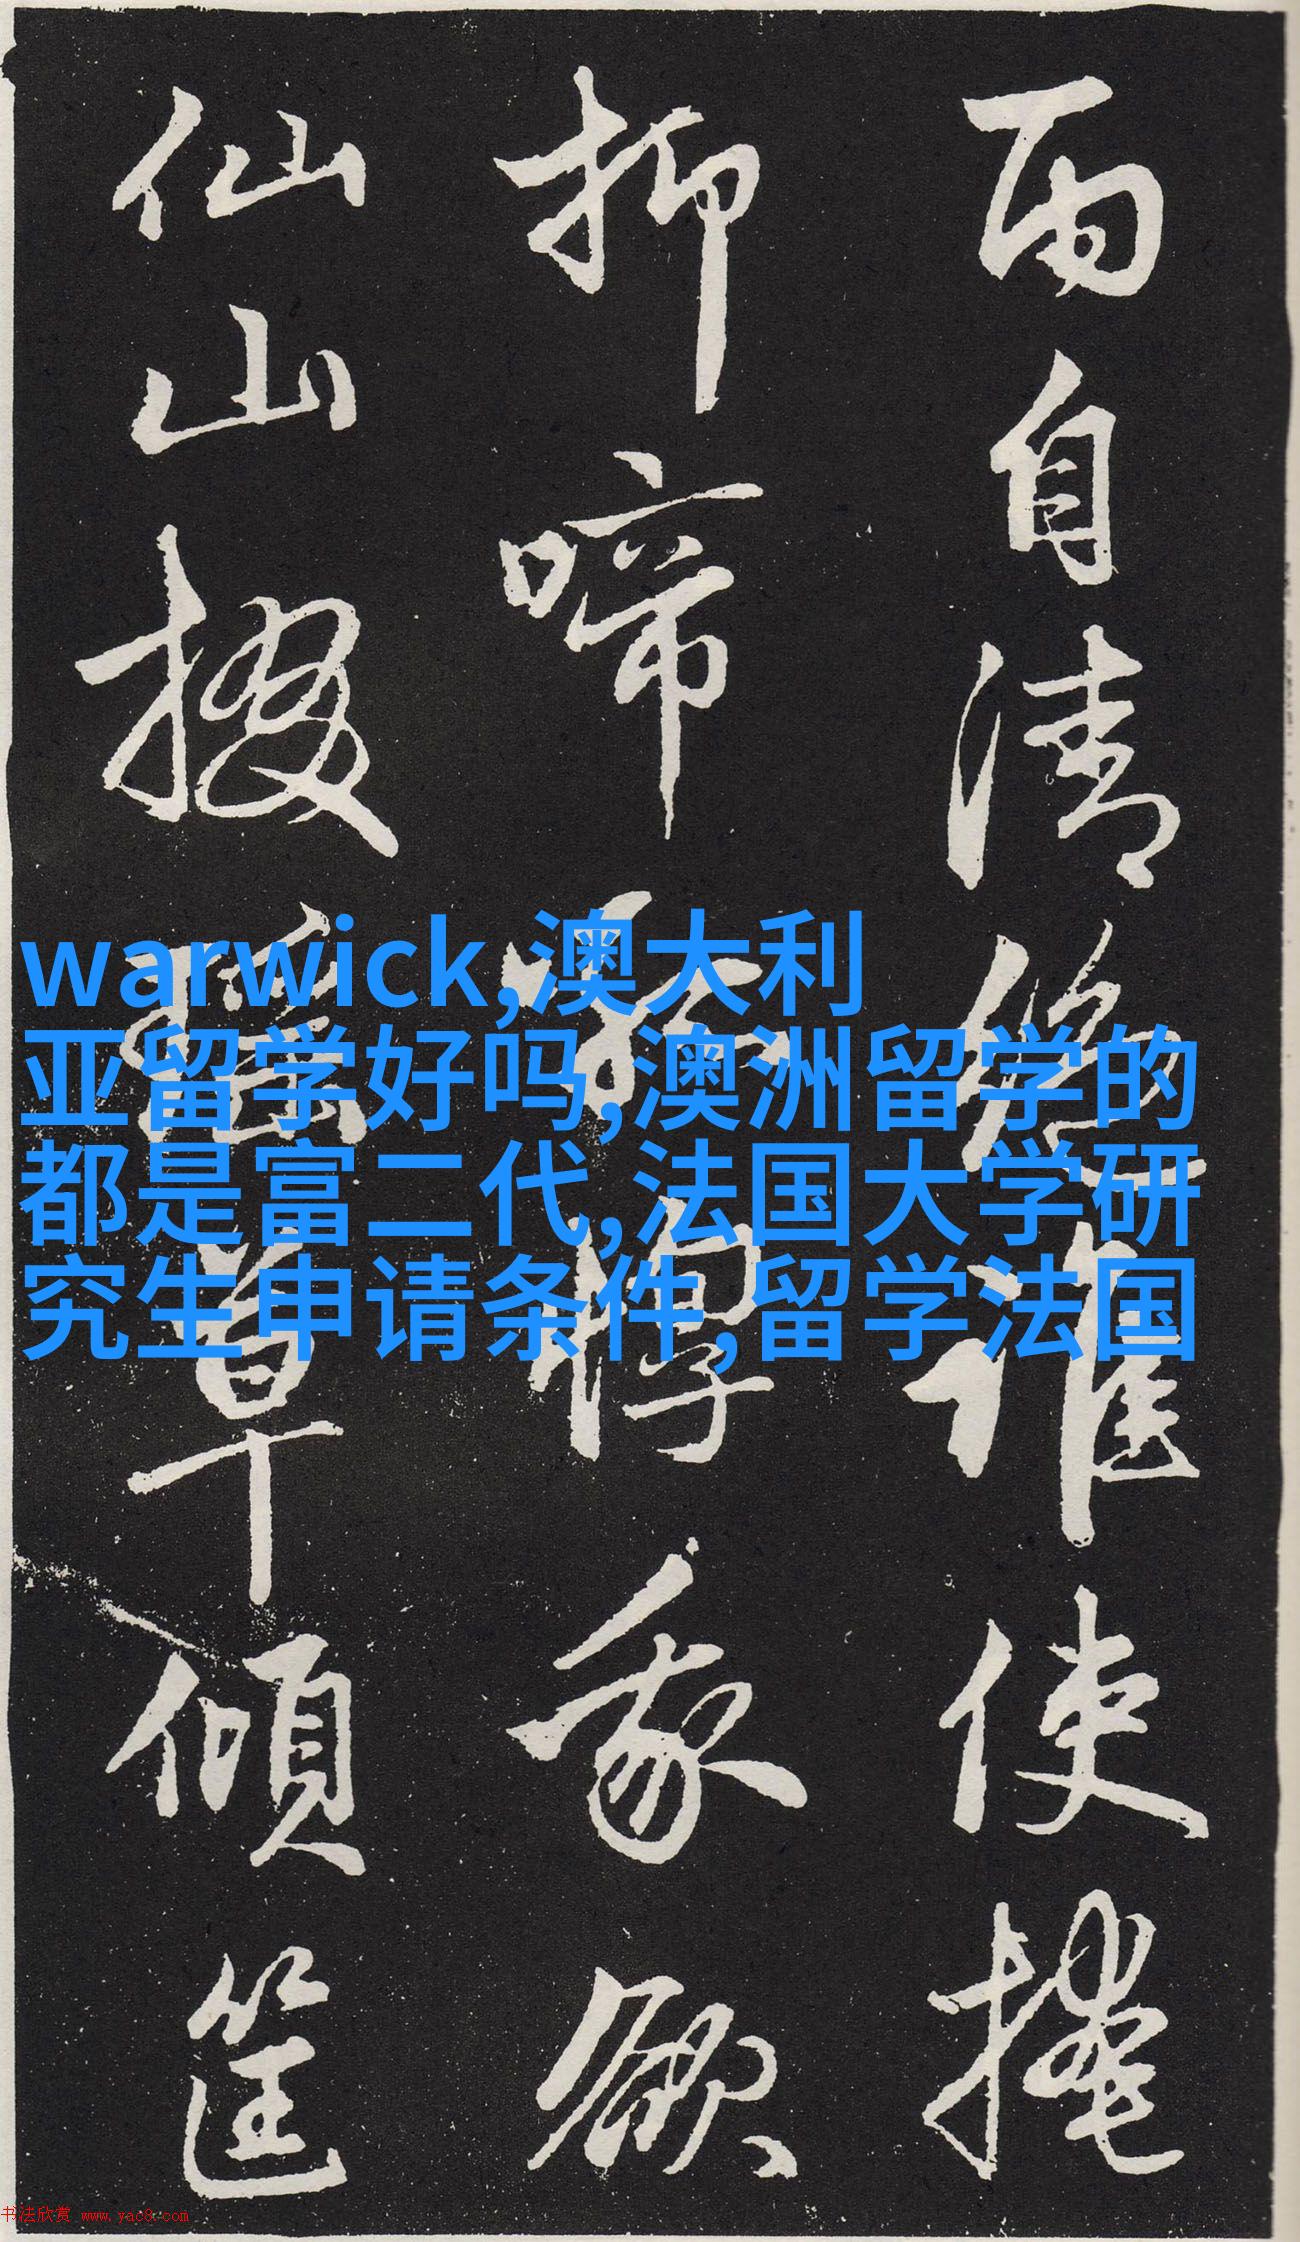 自清絕誰使掩
抑啼
仙山掇瑤草傾筐
warwick,澳大利
亚留学好吗,澳洲留学的
都是富二代,法国大学研
究生申请条件,留学法国
书法欣赏 www.yac8.com